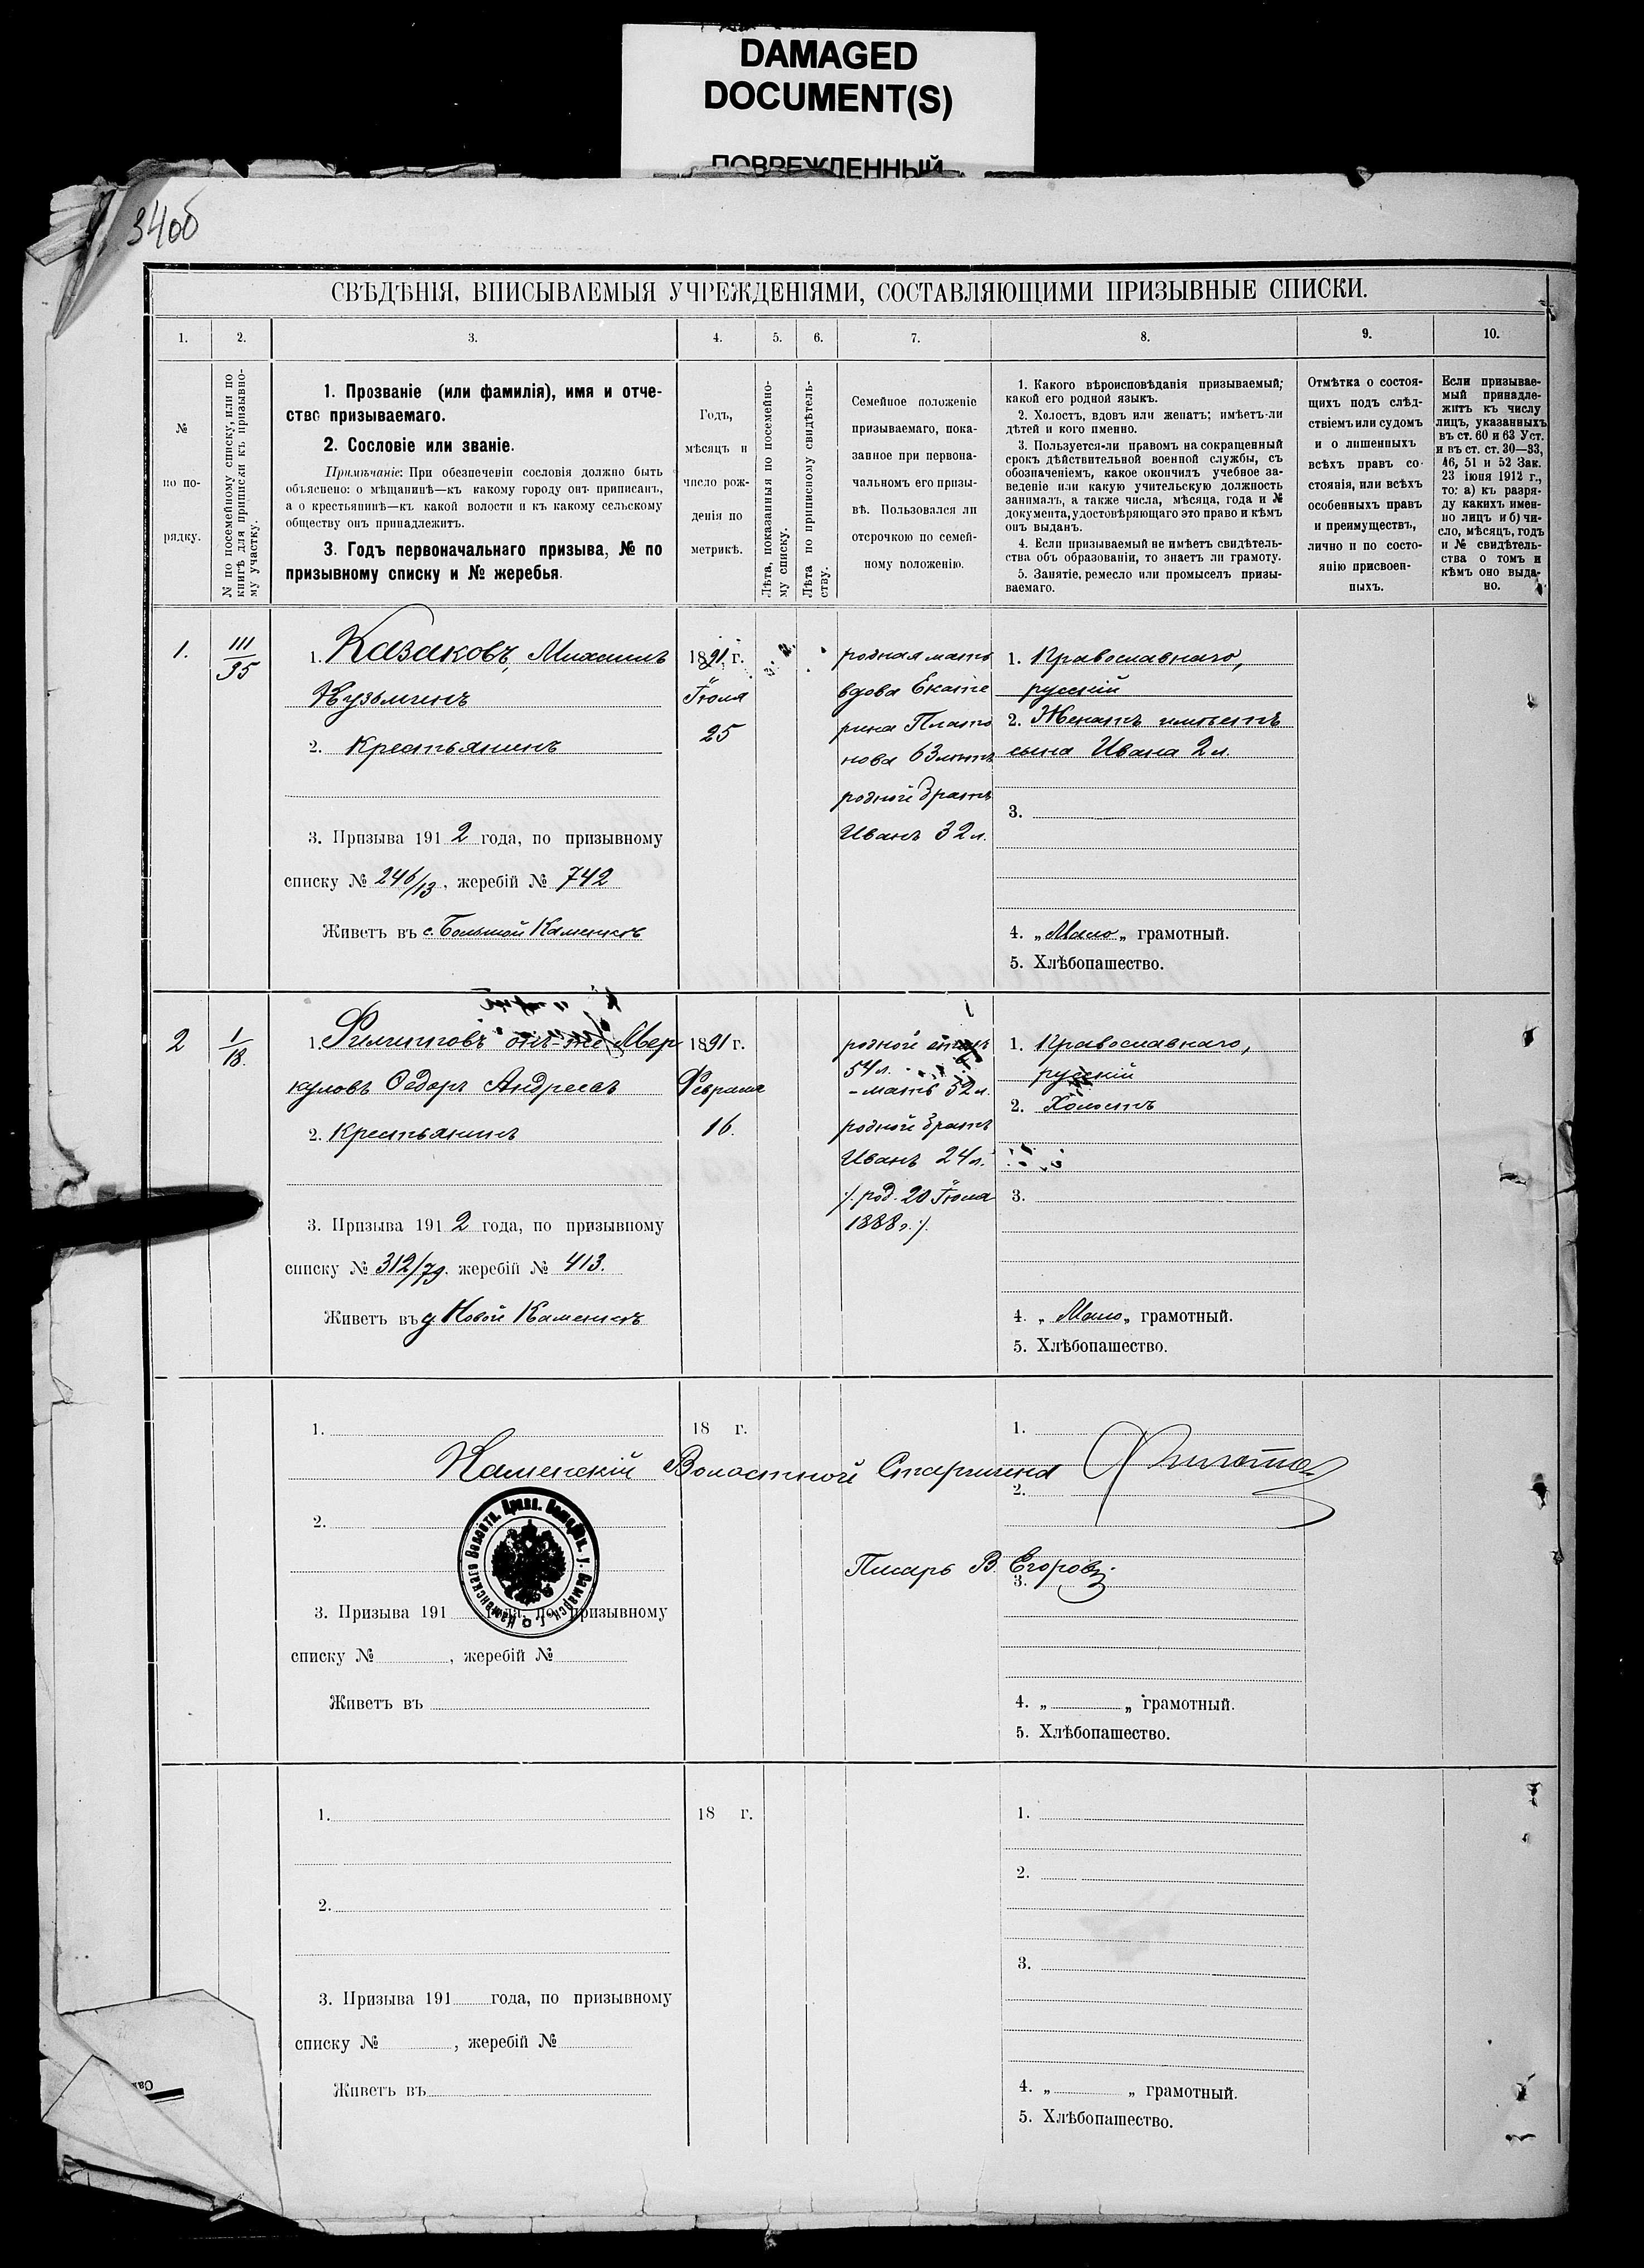 DAMAGED
DOCUMENT(S)
ПОВРЕЖДЕННЫЙ
34об
СВѢДѢНІЯ, ВПИСЫВАЕМЫЯ УЧРЕЖДЕНІЯМИ, СОСТАВЛЯЮЩИМИ ПРИЗЫВНЫЕ СПИСКИ.
1. 2. 3. 4. 5. 6. 7. 8. 9. 10.
№
по по-
рядку.
№ по посемейному списку, или по
книгѣ для приписки къ призывно-
му участку.
1. Прозваніе (или фамилія), имя и отче-
ство призываемаго.
2. Сословіе или званіе.
Примѣчаніе: При обезпеченіи сословія должно быть
объяснено: о мѣщанинѣ—къ какому городу онъ приписанъ,
а о крестьянинѣ—къ какой волости и къ какому сельскому
обществу онъ принадлежитъ.
3. Годъ первоначальнаго призыва, № по
призывному списку и № жеребья.
Годъ,
мѣсяцъ и
число рож-
денія по
метрикѣ.
Лѣта, показанныя по посемейно-
му списку.
Лѣта по приписному свидѣтель-
ству.
Семейное положеніе
призываемаго, пока-
занное при первона-
чальномъ его призы-
вѣ. Пользовался ли
отсрочкою по семей-
ному положенію.
1. Какого вѣроисповѣданія призываемый;
какой его родной языкъ.
2. Холостъ, вдовъ или женатъ; имѣетъ-ли
дѣтей и кого именно.
3. Пользуется-ли правомъ на сокращенный
срокъ дѣйствительной военной службы, съ
обозначеніемъ, какое окончилъ учебное за-
веденіе или какую учительскую должность
занималъ, а также числа, мѣсяца, года и №
документа, удостовѣряющаго это право и кѣмъ
онъ выданъ.
4. Если призываемый не имѣетъ свидѣтель-
ства объ образованіи, то знаетъ ли грамоту.
5. Занятіе, ремесло или промыселъ призы-
ваемаго.
Отмѣтка о состоя-
щихъ подъ слѣд-
ствіемъ или судомъ
и о лишенныхъ
всѣхъ правъ со-
стоянія, или всѣхъ
особенныхъ правъ
и преимуществъ,
лично и по состо-
янію присвоен-
ныхъ.
Если призывае-
мый принадле-
житъ къ числу
лицъ, указанныхъ
въ ст. 60 и 63 Уст.
и въ ст. ст. 30—33,
46, 51 и 52 Зак.
23 іюня 1912 г.,
то: а) къ разря-
ду какихъ имен-
но лицъ и б) чи-
сло, мѣсяцъ, годъ
и № свидѣтель-
ства о томъ и
кѣмъ оно выда-
но.
1.
III/95
1. Казаковъ, Михаилъ
Кузьминъ
2. Крестьянинъ
3. Призыва 1912 года, по призывному
списку № 246/13, жеребій № 742
Живетъ въ с. Большой Каменкѣ
1891 г.
Іюля
25
родная мать
вдова Екате
рина Плато
нова 63 лѣтъ
родной братъ
Иванъ 32 л.
1. Православнаго,
русскій
2. Женатъ имѣетъ
сына Ивана 2 л.
3.
4. „Мало„ грамотный.
5. Хлѣбопашество.
2
1/18.
1. Филипповъ онъ-же Мер
куловъ Ѳедоръ Андреевъ
2. Крестьянинъ
3. Призыва 1912 года, по призывному
списку № 312/79. жеребій № 413.
Живетъ въ д. Новой Каменкѣ
1891 г.
Февраля
16.
родной отецъ
54 л.
- мать 52 л.
родной братъ
Иванъ 24 л.
/. род. 20 Іюля
1888 г. /.
1. Православнаго,
русскій
2. Холостъ
3.
4. „Мало„ грамотный.
5. Хлѣбопашество.
1.
18 г.
1.
Каменскій Волостной Старшина
2.
2.
Писарь В. Егоровъ
3.
3. Призыва 191 года, по призывному
списку № , жеребій №
Живетъ въ
4. „ „ грамотный.
5. Хлѣбопашество.
1.
18 г.
1.
2.
2.
3.
3. Призыва 191 года, по призывному
списку № , жеребій №
Живетъ въ
4. „ „ грамотный.
5. Хлѣбопашество.